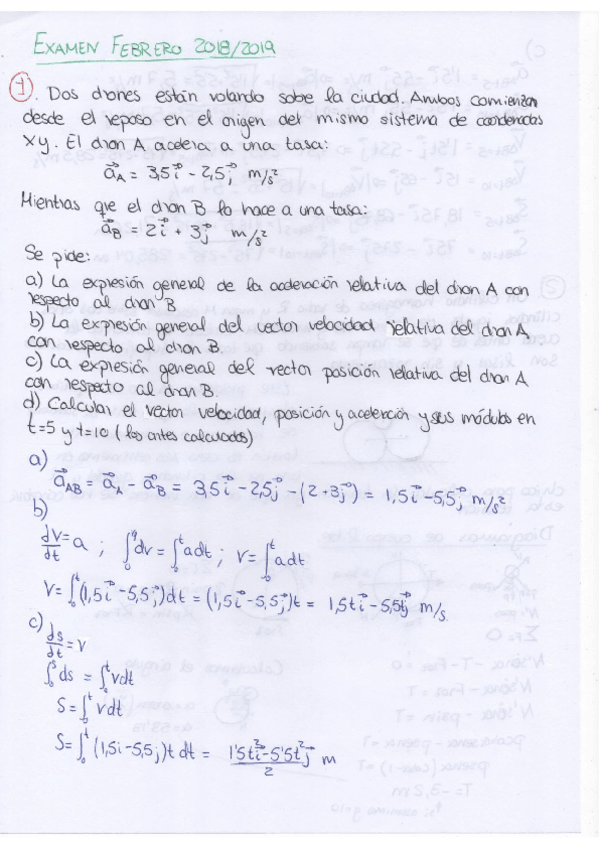 EXAMEN FEBRERO 2018/2019
1 Dos drones están volando sobre la ciudad. Ambos comienzan
desde el reposo en el origen del mismo sistema de coordenadas
xy. El dron A acelera a una tasa:
a⃗_A = 3,5i⃗ - 2,5j⃗ m/s²
Mientras que el dron B lo hace a una tasa:
a⃗_B = 2i⃗ + 3j⃗ m/s²
Se pide:
a) La expresión general de la aceleración relativa del dron A con
respecto al dron B
b) La expresión general del vector velocidad relativa del dron A
con respecto al dron B
c) La expresión general del vector posición relativa del dron A
con respecto al dron B.
d) Calcular el vector velocidad, posición y aceleración y sus módulos en
t=5 y t=10 (los antes calculados)
a)
a⃗_AB = a⃗_A - a⃗_B = 3,5i⃗ - 2,5j⃗ - (2+3j⃗) = 1,5i⃗ - 5,5j⃗ m/s²
b)
dv/dt = a ; ∫₀ᵛ dv = ∫₀ᵗ a dt ; v = ∫₀ᵗ a dt
V = ∫₀ᵗ (1,5i⃗ - 5,5j⃗) dt = (1,5i⃗ - 5,5j⃗)t = 1,5ti⃗ - 5,5tj⃗ m/s.
c)
ds/dt = v
∫₀ˢ ds = ∫₀ᵗ v dt
S = ∫₀ᵗ v dt
S = ∫₀ᵗ (1,5i - 5,5j) t dt = (1'5t²i⃗ - 5'5t²j⃗)/2 m